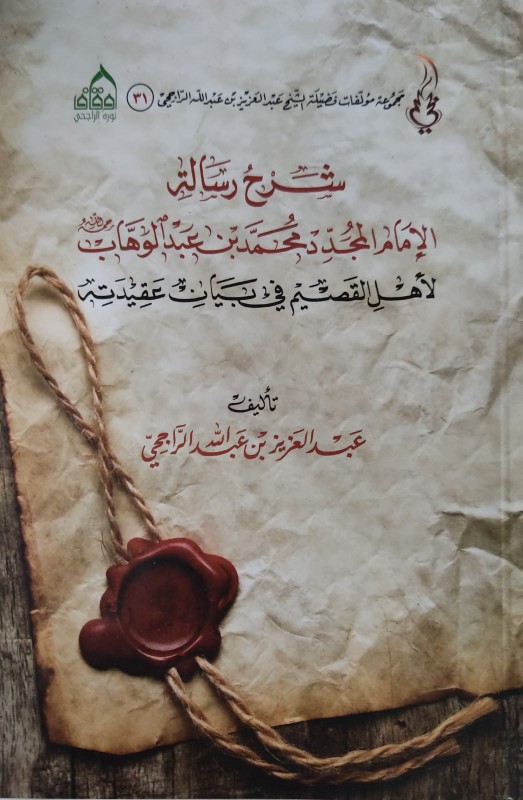 مجموعة مؤلفات فضيلة الشيخ عبد العزيز بن عبد الله الراجحي (٣١)
نورة الراجحي
شرح رسالة
الإمام المجدد محمد بن عبد الوهاب رحمه الله
لأهل القصيم في بيان عقيدته
تأليف
عبد العزيز بن عبد الله الراجحي